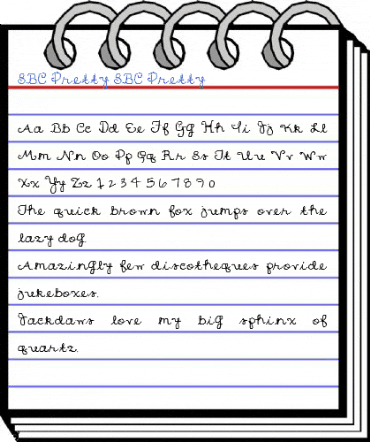 SBC Pretty SBC Pretty
Aa Bb Cc Dd Ee Ff Gg Hh Ii Jj Kk Ll
Mm Nn Oo Pp Qq Rr Ss Tt Uu Vv Ww
Xx Yy Zz 1 2 3 4 5 6 7 8 9 0
The quick brown fox jumps over the
lazy dog
Amazingly few discotheques provide
jukeboxes.
Jackdaws love my big sphinx of
quartz.